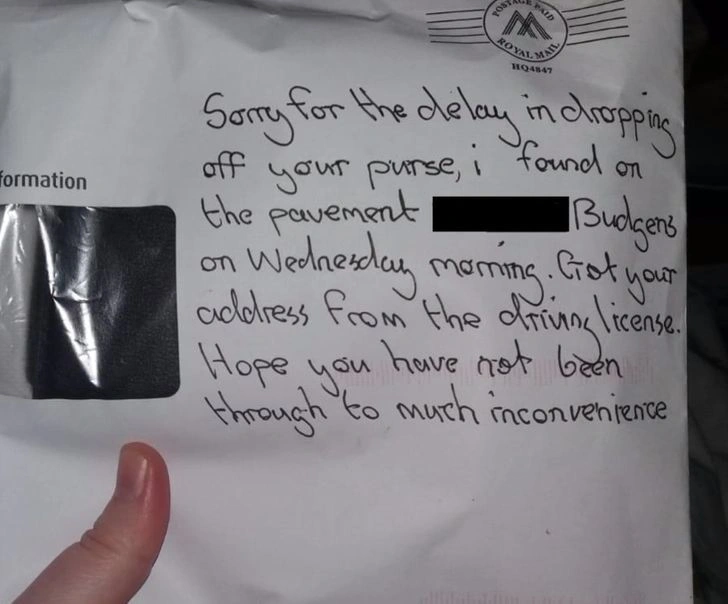 POSTAGE PAID
ROYAL MAIL
HQ4847
formation
Sorry for the delay in dropping
off your purse, i found on
the pavement Budgens
on Wednesday morning. Got your
address from the driving license.
Hope you have not been
through to much inconvenience